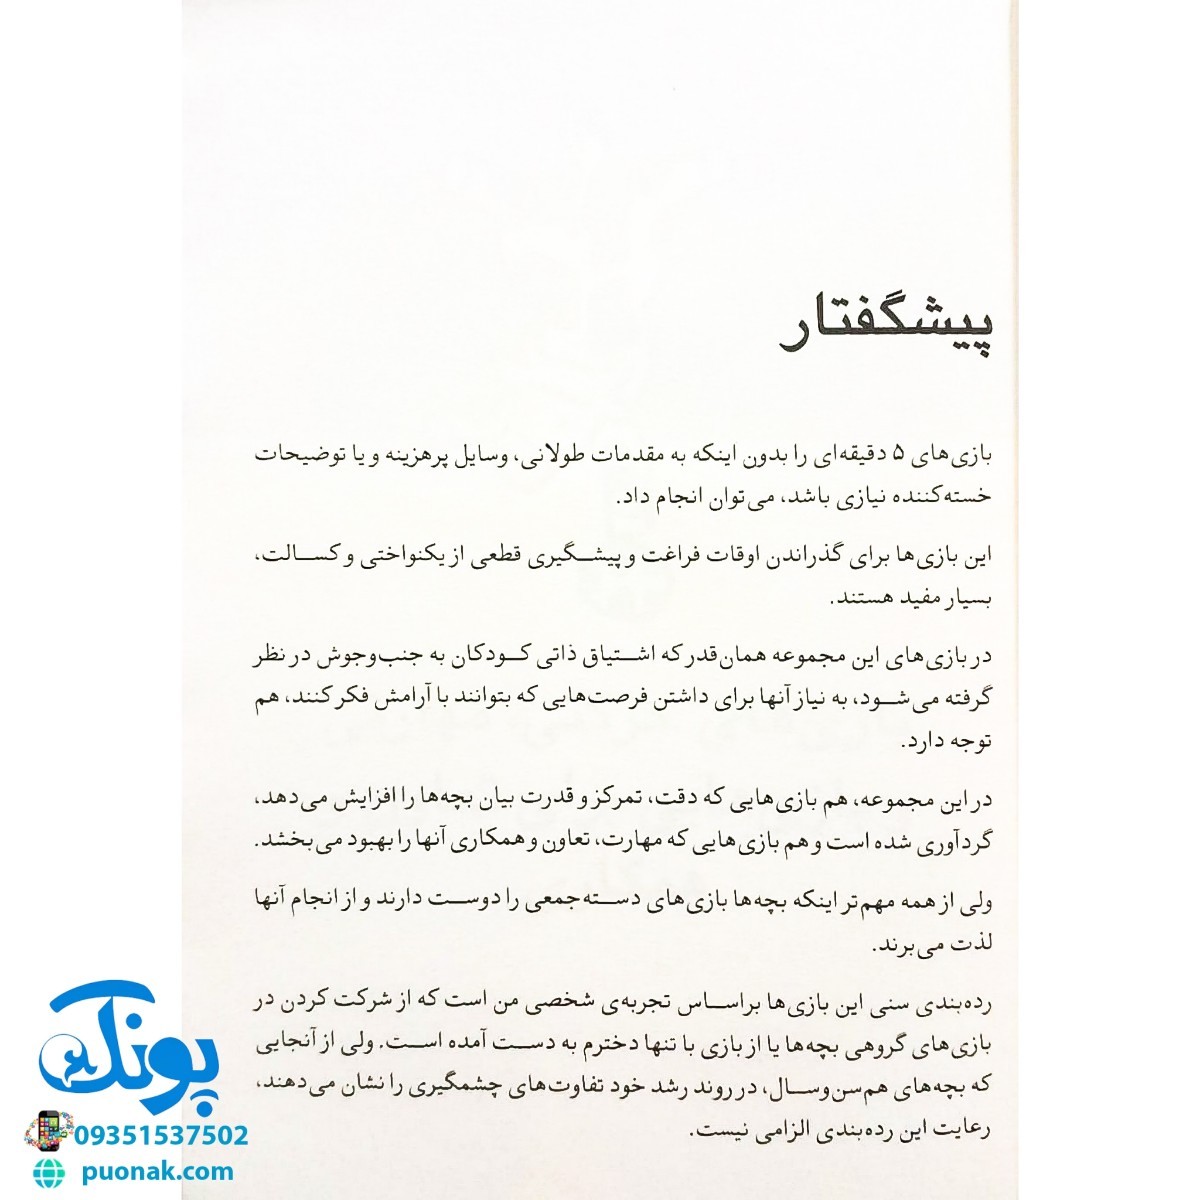 پیشگفتار
بازی‌های ۵ دقیقه‌ای را بدون اینکه به مقدمات طولانی، وسایل پرهزینه و یا توضیحات
خسته‌کننده نیازی باشد، می‌توان انجام داد.
این بازی‌ها برای گذراندن اوقات فراغت و پیشگیری قطعی از یکنواختی و کسالت،
بسیار مفید هستند.
در بازی‌های این مجموعه همان‌قدر که اشتیاق ذاتی کودکان به جنب‌وجوش در نظر
گرفته می‌شود، به نیاز آنها برای داشتن فرصت‌هایی که بتوانند با آرامش فکر کنند، هم
توجه دارد.
در این مجموعه، هم بازی‌هایی که دقت، تمرکز و قدرت بیان بچه‌ها را افزایش می‌دهد،
گردآوری شده است و هم بازی‌هایی که مهارت، تعاون و همکاری آنها را بهبود می‌بخشد.
ولی از همه مهم‌تر اینکه بچه‌ها بازی‌های دسته‌جمعی را دوست دارند و از انجام آنها
لذت می‌برند.
رده‌بندی سنی این بازی‌ها براساس تجربه‌ی شخصی من است که از شرکت کردن در
بازی‌های گروهی بچه‌ها یا از بازی با تنها دخترم به دست آمده است. ولی از آنجایی
که بچه‌های هم‌سن‌وسال، در روند رشد خود تفاوت‌های چشمگیری را نشان می‌دهند،
رعایت این رده‌بندی الزامی نیست.
پونک
09351537502
puonak.com